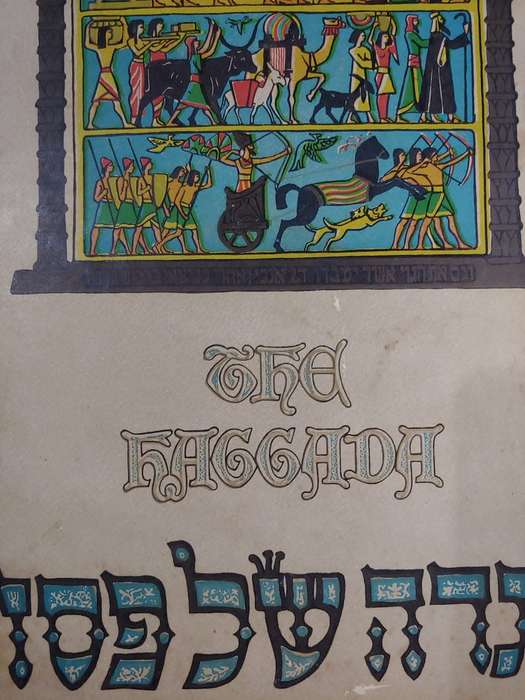 THE
HAGGADA
גדה של פסח